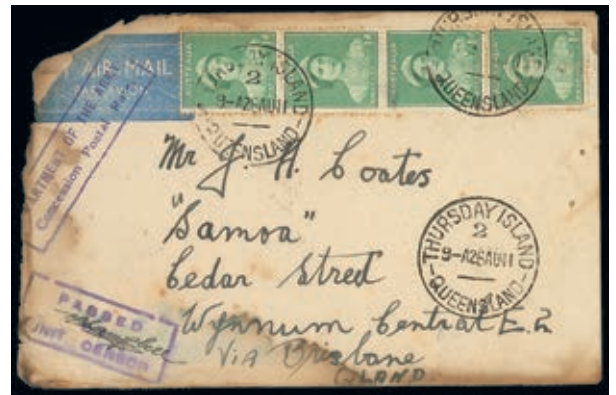 BY AIR MAIL
PAR AVION
AUSTRALIA
DEPARTMENT OF THE ARMY
Concession Postal Rate
THURSDAY ISLAND
2
9-A26AU41
QUEENSLAND
THURSDAY ISLAND
QUEENSLAND
Mr J. H. Coates
"Samoa"
Cedar Street
Wynnum Central E.2
Via Brisbane
QLAND
THURSDAY ISLAND
2
9-A26AU41
QUEENSLAND
PASSED
UNIT CENSOR